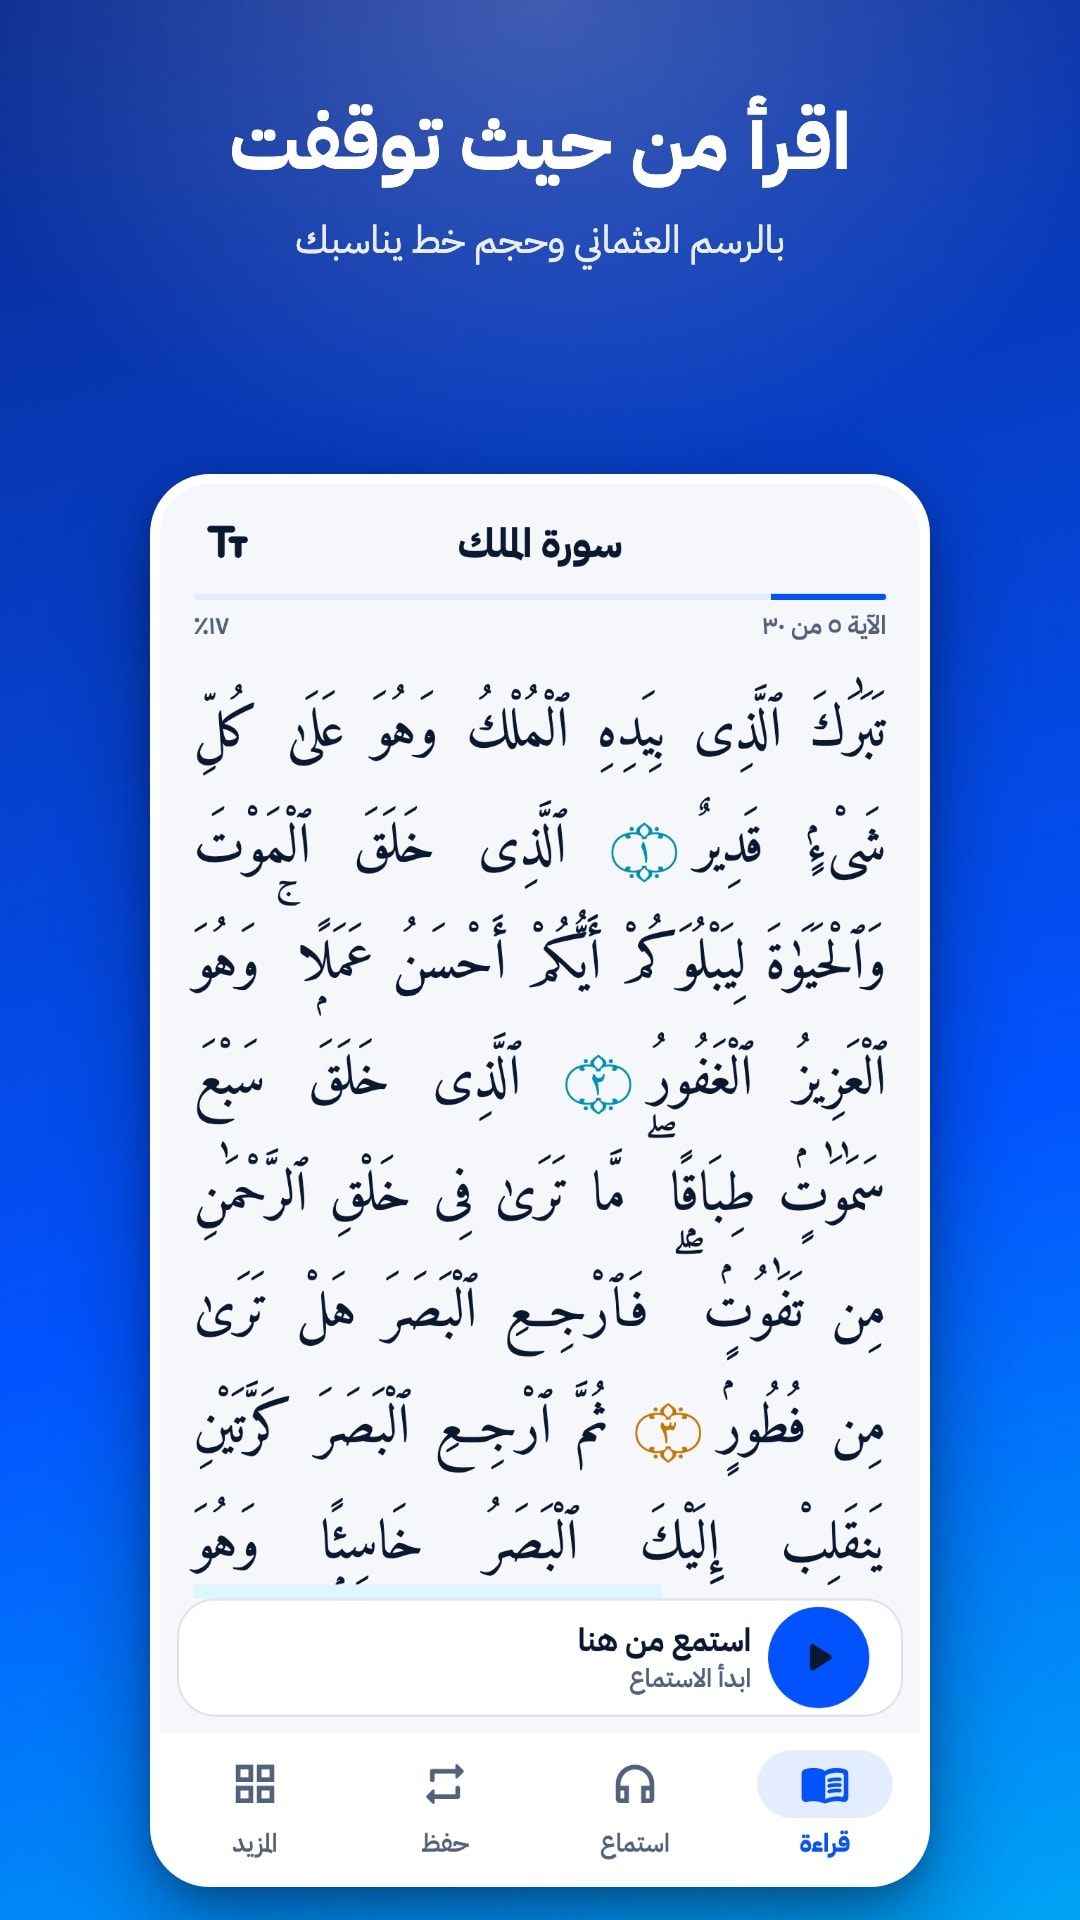 اقرأ من حيث توقفت
بالرسم العثماني وحجم خط يناسبك
سورة الملك
الآية ٥ من ٣٠
٪١٧
تَبَٰرَكَ ٱلَّذِى بِيَدِهِ ٱلْمُلْكُ وَهُوَ عَلَىٰ كُلِّ
شَىْءٍۢ قَدِيرٌ ١ ٱلَّذِى خَلَقَ ٱلْمَوْتَ
وَٱلْحَيَوٰةَ لِيَبْلُوَكُمْ أَيُّكُمْ أَحْسَنُ عَمَلًۭا ۚ وَهُوَ
ٱلْعَزِيزُ ٱلْغَفُورُ ٢ ٱلَّذِى خَلَقَ سَبْعَ
سَمَٰوَٰتٍۢ طِبَاقًۭا ۖ مَّا تَرَىٰ فِى خَلْقِ ٱلرَّحْمَٰنِ
مِن تَفَٰوُتٍۢ ۖ فَٱرْجِعِ ٱلْبَصَرَ هَلْ تَرَىٰ
مِن فُطُورٍۢ ٣ ثُمَّ ٱرْجِعِ ٱلْبَصَرَ كَرَّتَيْنِ
يَنقَلِبْ إِلَيْكَ ٱلْبَصَرُ خَاسِئًۭا وَهُوَ
استمع من هنا
ابدأ الاستماع
قراءة
استماع
حفظ
المزيد